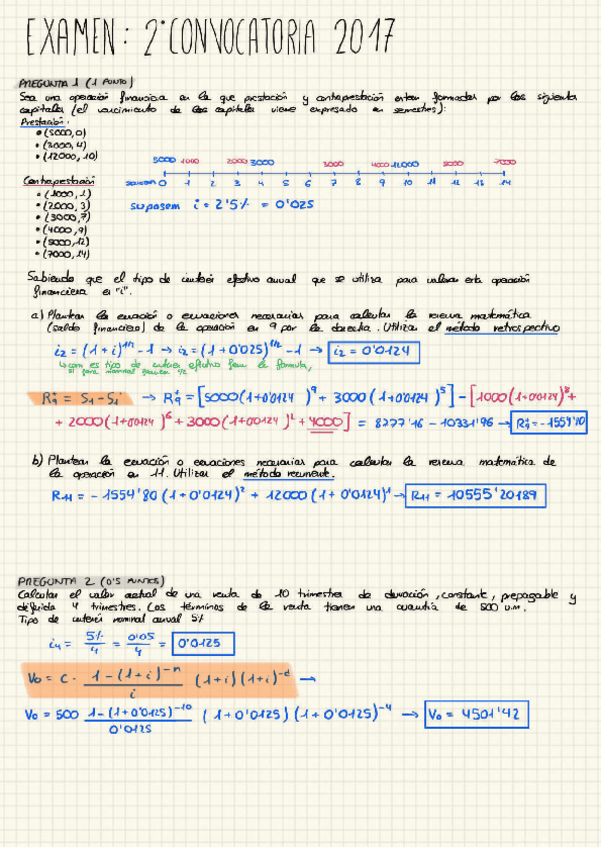 EXAMEN: 2ª CONVOCATORIA 2017
PREGUNTA 1 (1 PUNTO)
Sea una operación financiera en la que prestación y contraprestación estan formadas por los siguientes
capitales (el vencimiento de los capitales viene expresado en semestres):
Prestación.
• (5000,0)
• (3000,4)
• (12000,10)
5000 1000 2000 3000 3000 4000 12000 5000 7000
0 1 2 3 4 5 6 7 8 9 10 11 12 13 14
Contraprestación
• (1000,1)
• (2000,3)
• (3000,7)
• (4000,9)
• (5000,12)
• (7000,14)
suposem i = 2'5% = 0'025
Sabiendo que el tipo de interés efectivo anual que se utiliza para valorar esta operación
financiera es "i".
a) Plantear la ecuación o ecuaciones necesarias para calcular la reserva matemática
(saldo financiero) de la operación en 9 por la derecha. Utilizar el método retrospectivo
i2 = (1+i)^1/2 - 1 → i2 = (1+0'025)^1/2 - 1 → i2 = 0'0124
R9⁺ = S1 - S2' → R9⁺ = [5000(1+0'0124)^9 + 3000(1+0'0124)^5] - [1000(1+0'0124)^8 +
+ 2000(1+0'0124)^6 + 3000(1+0'0124)^2 + 4000] = 8777'16 - 10331'96 → R9⁺ = -1554'80
b) Plantear la ecuación o ecuaciones necesarias para calcular la reserva matemática de
la operación en 11. Utilizar el método recurrente.
R11 = -1554'80(1+0'0124)^2 + 12000(1+0'0124)^1 → R11 = 10555'20189
PREGUNTA 2 (0'5 PUNTOS)
Calcular el valor actual de una renta de 10 trimestres de duración, constante, prepagable y
diferida 4 trimestres. Los términos de la renta tienen una cuantía de 500 u.m.
Tipo de interés nominal anual 5%
i4 = 5%/4 = 0'05/4 = 0'0125
V0 = C · 1-(1+i)^-n / i (1+i)(1+i)^-d →
V0 = 500 1-(1+0'0125)^-10 / 0'0125 (1+0'0125)(1+0'0125)^-4 → V0 = 4501'42